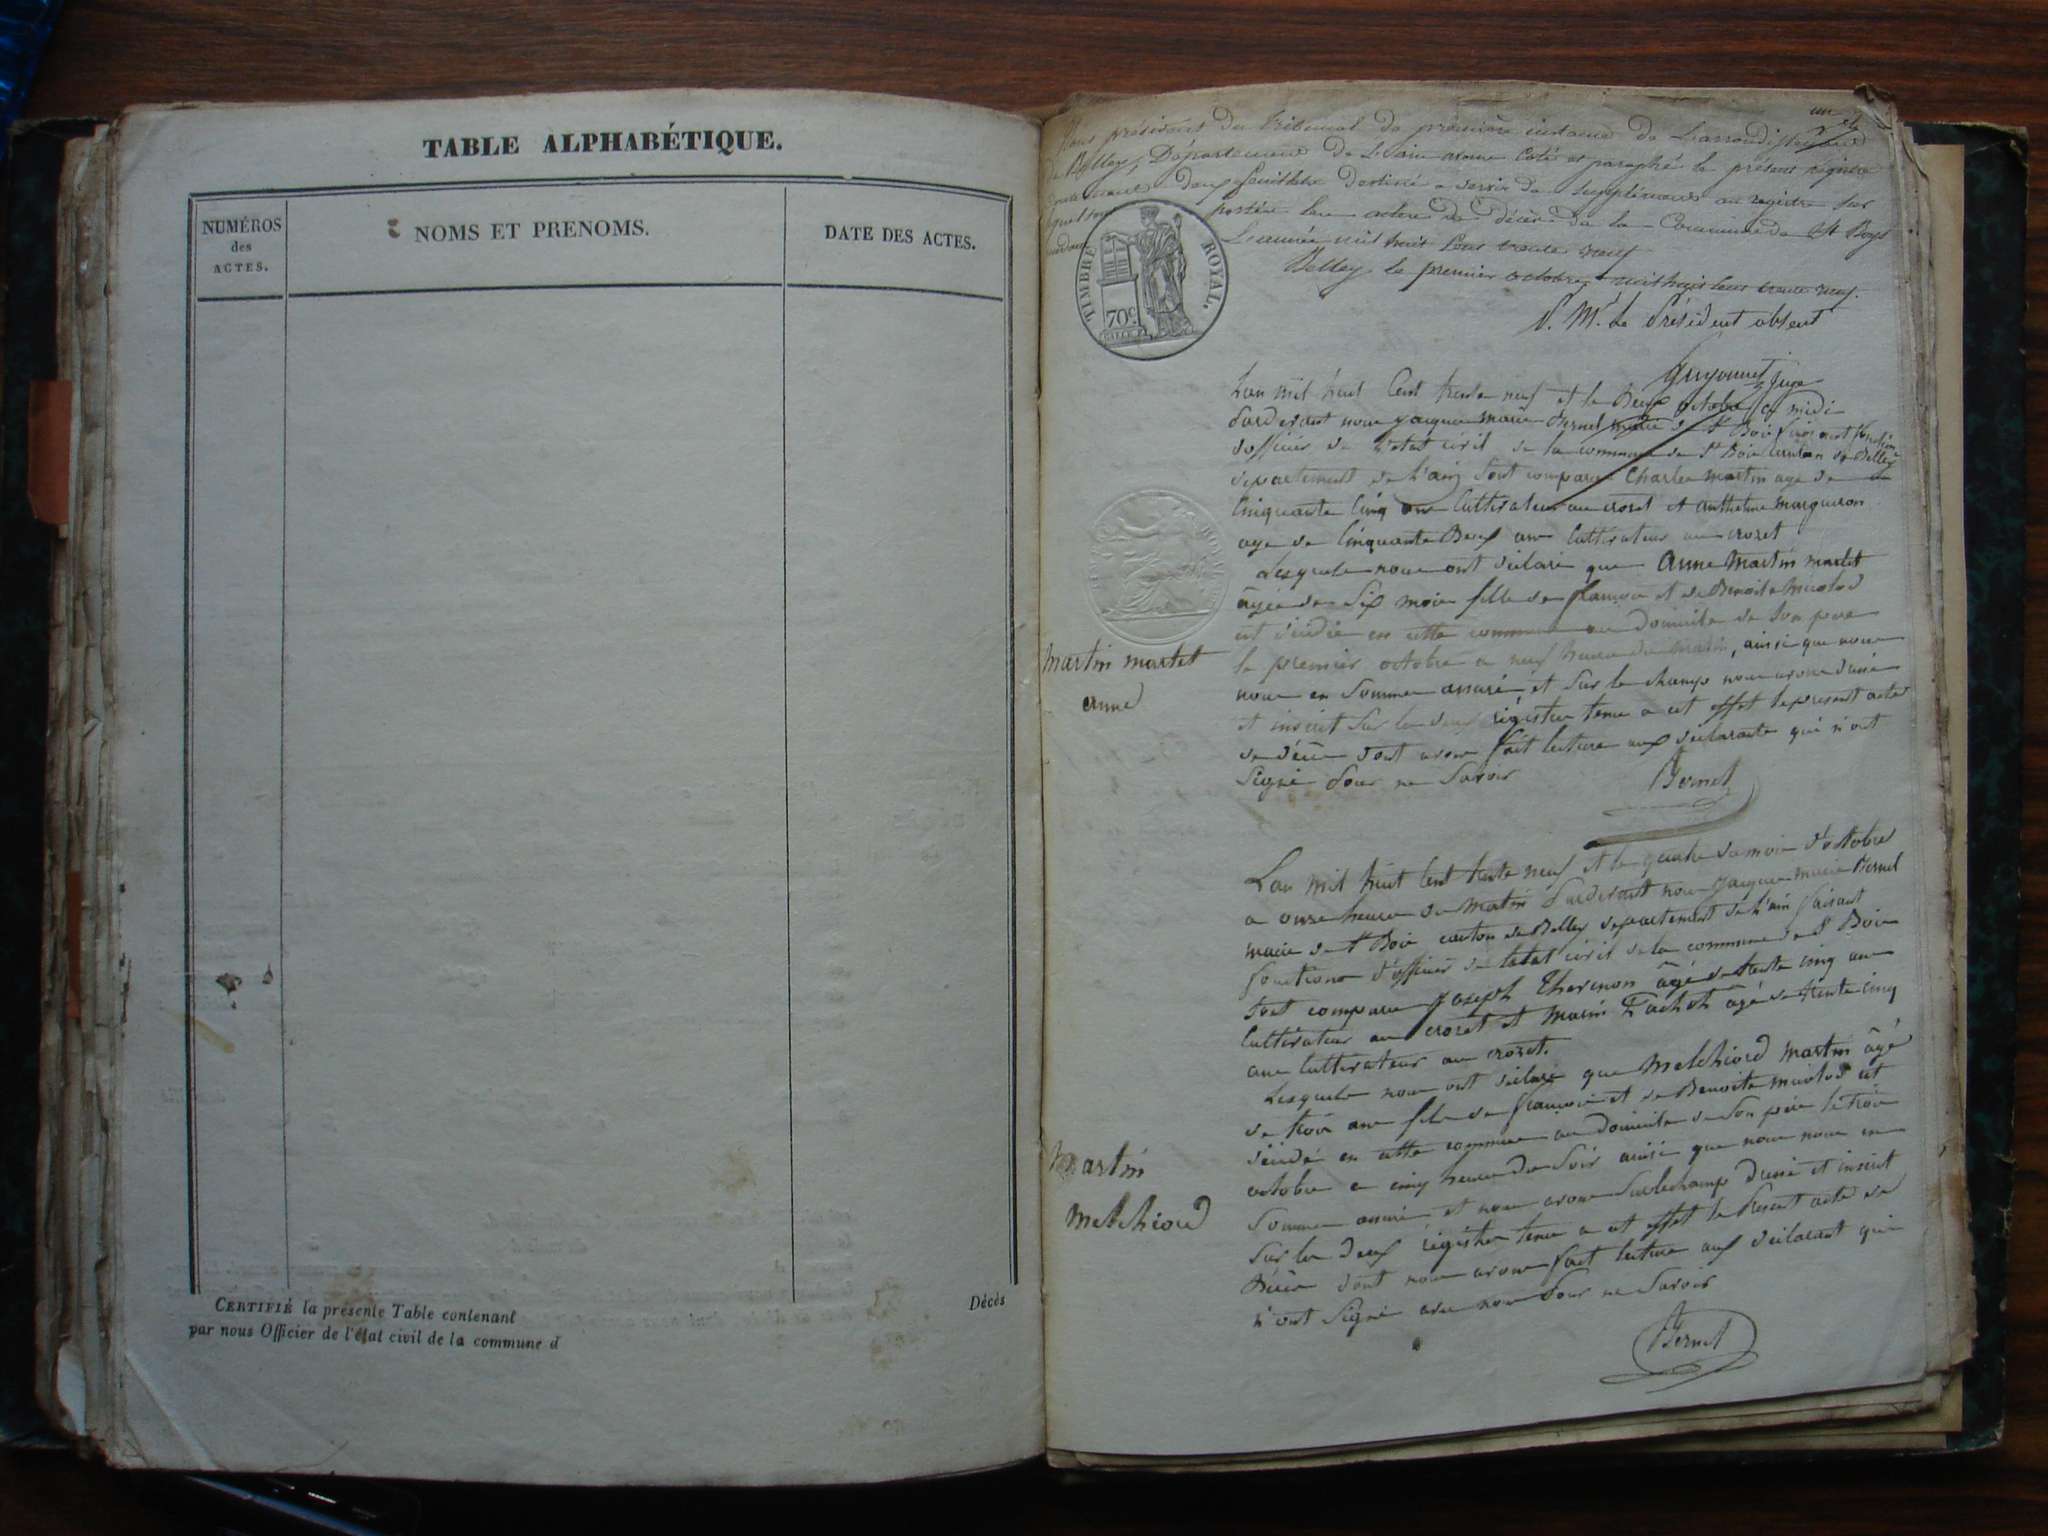 TABLE ALPHABÉTIQUE.
NUMÉROS
des
ACTES.
NOMS ET PRENOMS.
DATE DES ACTES.
CERTIFIÉ la présente Table contenant
par nous Officier de l'état civil de la commune d
Décès
Nous président du tribunal de première instance de L'arrondissement
de Belley, Département de L'ain avons coté et paraphé le présent registre
deux feuillets destiné a servir de supplément au registre sur
porter les actes de décès de la Commune de St Boys
L'année mil huit cent trente neuf
Belley le premier octobre mil huit cent trente neuf.
P. Mr. Le Président absent
Guyonnet juge
TIMBRE ROYAL.
70c.
L'an mil huit Cent trente neuf et le Deux octobre a midi
Pardevant nous jacques marie Bernel maire de St Bois faisant fonctions
d'officier de l'état civil de la commune de St Bois canton de Belley
departement de l'ain sont comparus Charles martin age de
Cinquante Cinq ans Cultivateur au crozet et anthelme marqueron
age de Cinquante Deux ans Cultivateur au crozet
Lesquels nous ont déclaré que Anne Martin martet
âgée de Six mois fille de françois et de Benoite Micolod
est décédée en cette commune au domicile de Son pere
le premier octobre a neuf heures du matin, ainsi que nous
nous en Sommes assuré, et Sur le champ nous avons dressé
et inscrit Sur les deux régistres tenus a cet effet le present acte
de décès dont avons fait lecture aux déclarants qui n'ont
Signé Pour ne Savoir
Bernel
martin martet
anne
L'an mil huit Cent trente neuf et le quatre du mois d'octobre
a onze heures du Matin Pardevant nous Jacques marie Bernel
maire de St Bois canton de Belley departement de l'ain faisant
fonctions d'officier de l'etat civil de la commune de St Bois
Sont comparus joseph Thevenon âgé de trente cinq ans
Cultivateur au crozet et Marin âgé de trente cinq
ans Cultivateur au crozet.
Lesquels nous ont déclaré que Melchiord Martin âgé
de trois ans fils de françois et de Benoite micolod est
décédé en cette commune au domicile de Son père le trois
octobre a cinq heures du Soir ainsi que nous nous en
Sommes assuré et nous avons Surlechamp dressé et inscrit
Sur les deux régistres tenus a cet effet le Present acte de
décès dont nous avons fait lecture aux déclarant qui
n'ont Signé avec nous Pour ne Savoir
Bernel
Martin
Melchiord